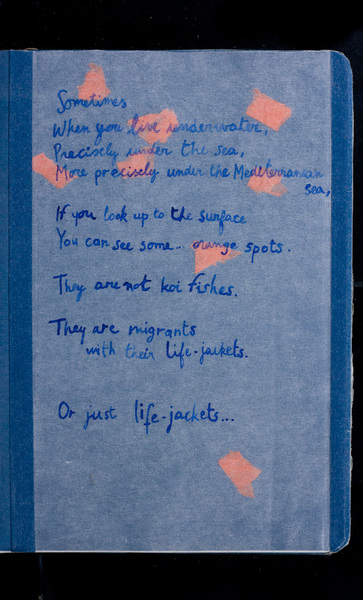 Sometimes
When you live underwater,
Precisely under the sea,
More precisely under the Mediterranean
sea,
If you look up to the surface
You can see some.. orange spots.
They are not koi fishes.
They are migrants
with their life-jackets.
Or just life-jackets...